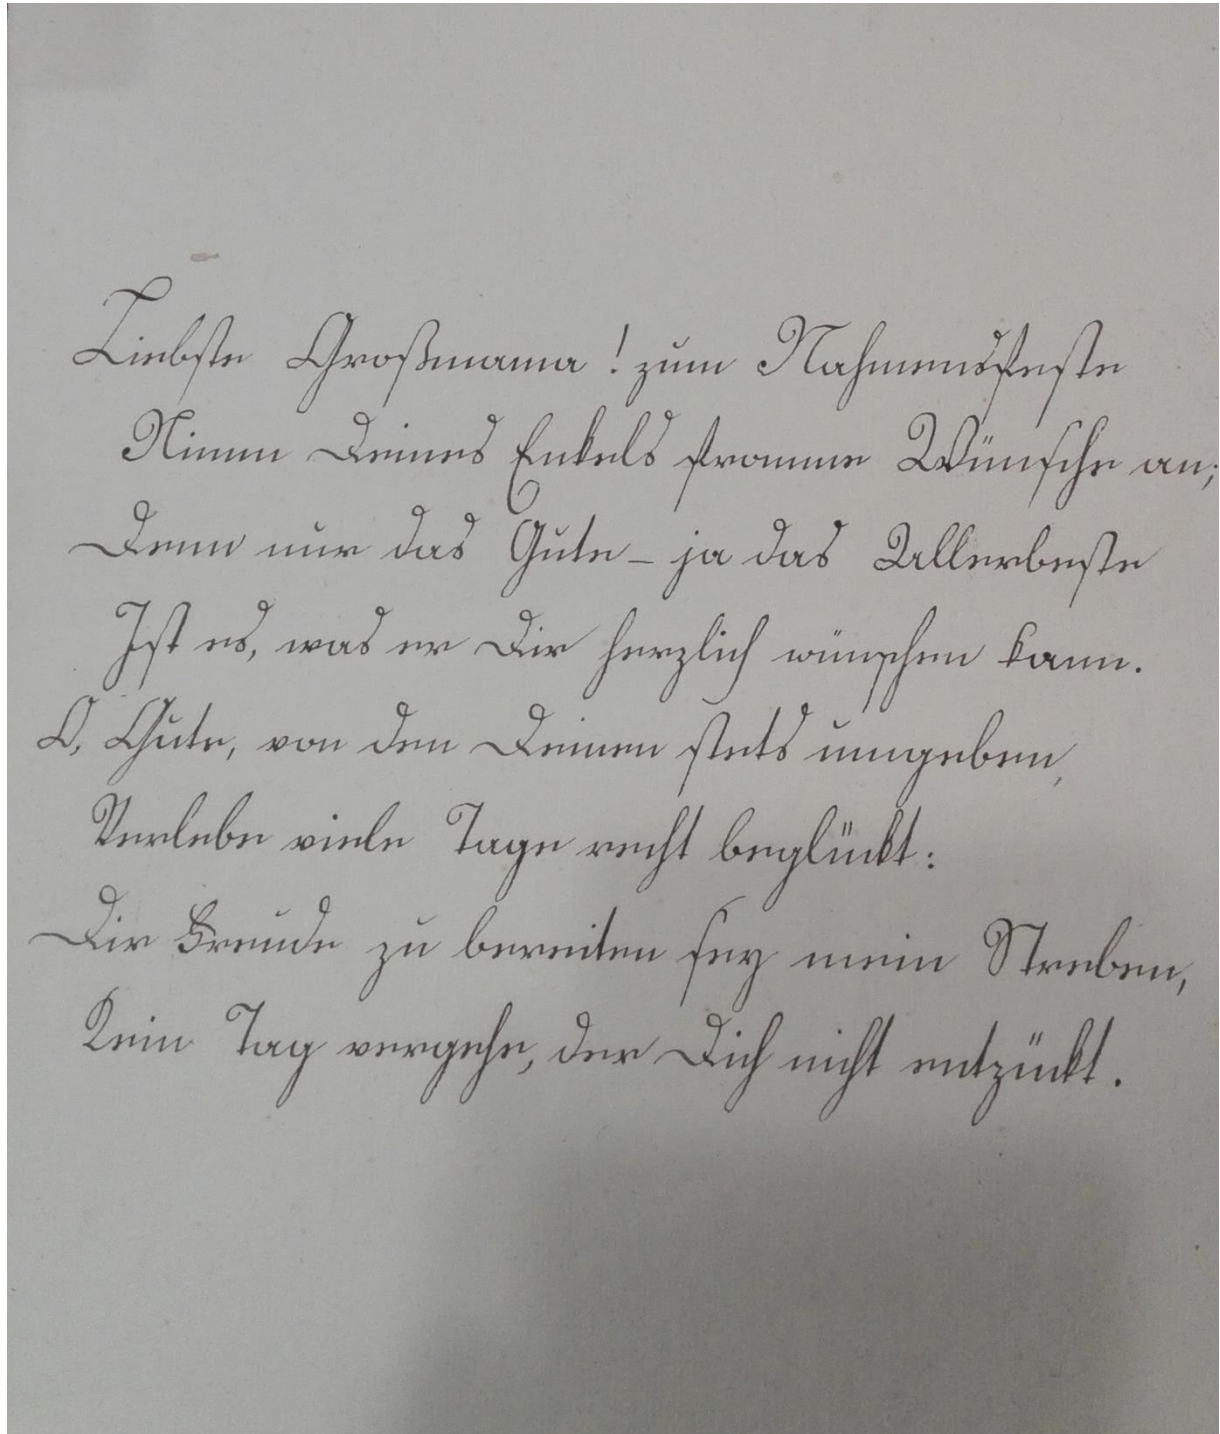 Liebste Großmama! zum Nahmensfeste
Nimm Deines Enkels fromme Wünsche an;
Denn nur das Gute – ja das Allerbeste
Ist es, was er Dir herzlich wünschen kann.
O, Gute, von den Deinen stets umgeben,
Verlebe viele Tage recht beglückt:
Dir Freude zu bereiten sey mein Streben,
Kein Tag vergehe, der Dich nicht entzückt.